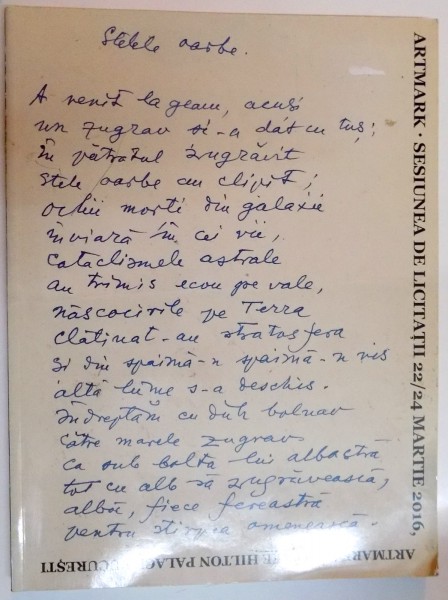 Stelele oarbe.
A venit la geam, acuși
un zugrav și-a dat cu tuș;
în pătratul zugrăvit
stele oarbe au clipit;
ochii morți din galaxii
înviară în cei vii,
cataclismele astrale
au trimis ecou pe vale,
născocirile pe Terra
clătinat-au stratosfera
și din spaimă-n spaimă-n vis
altă lume s-a deschis.
Îndreptăm cu duh bolnav
către marele zugrav
ca sub bolta lui albastră
tot cu alb să zugrăvească,
albă, fiece fereastră
pentru stirpea omenească.
ARTMARK · SESIUNEA DE LICITAȚII 22/24 MARTIE 2016,
ARTMARK HILTON PALACE BUCUREȘTI